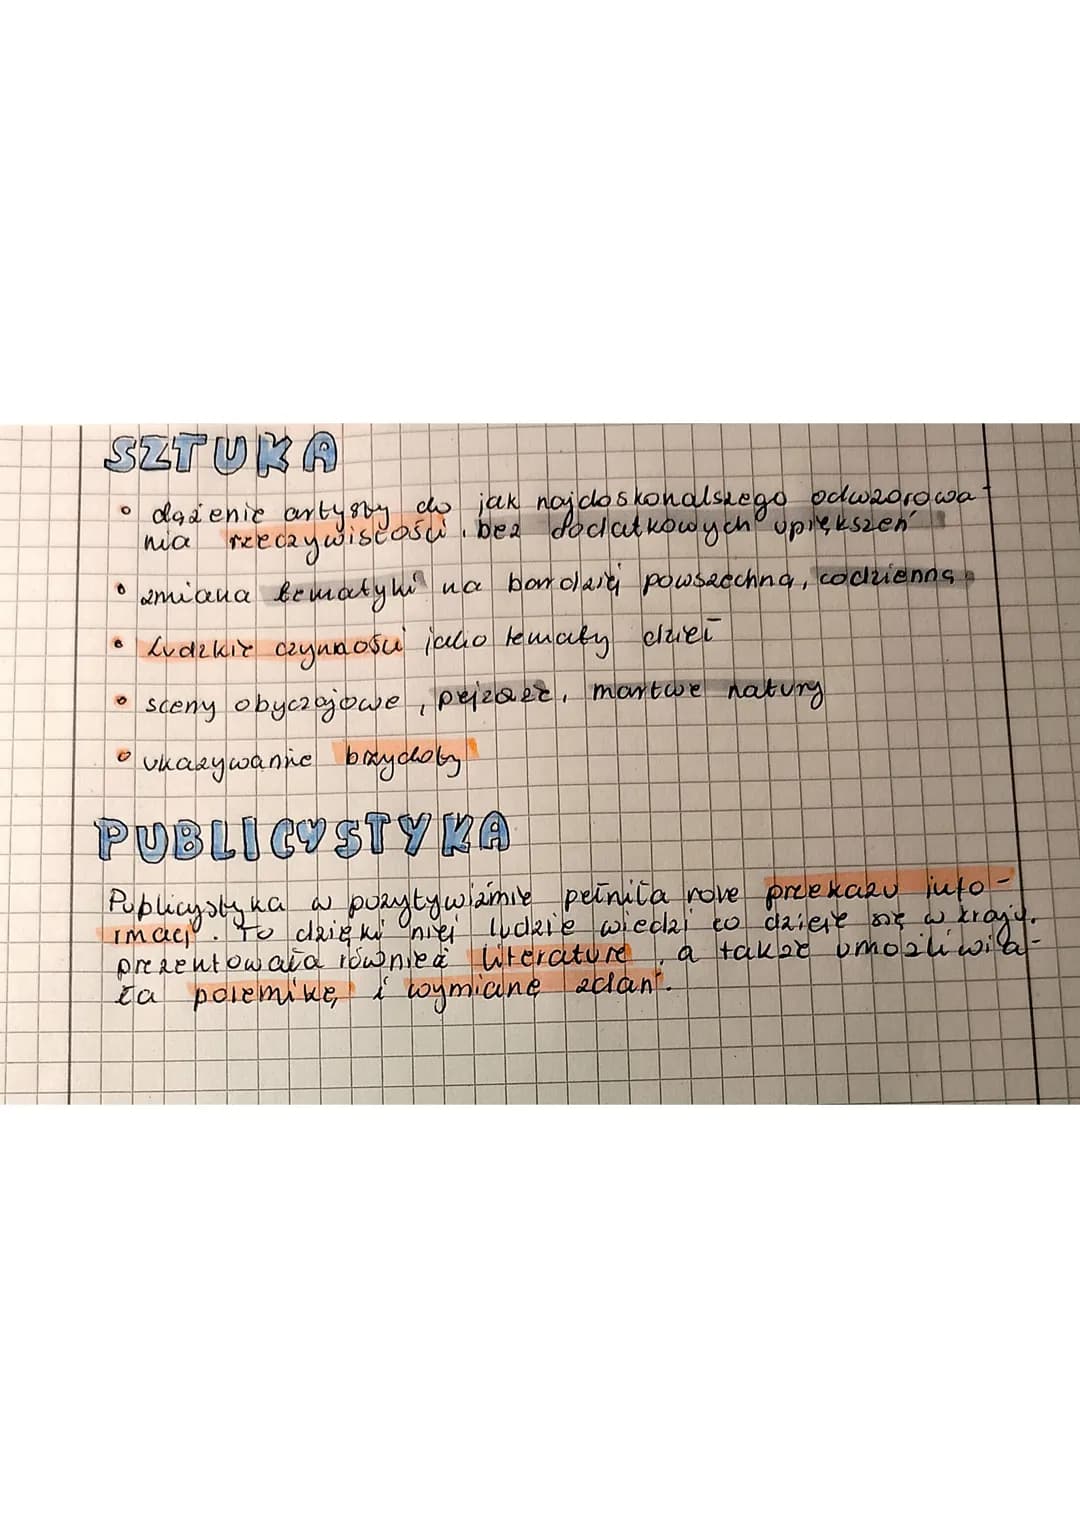 SZTUKA
• dążenie artysty do jak najdoskonalszego odwzorowa-
nia rzeczywistości, bez dodatkowych upiększeń
• zmiana tematyki na bardziej powszechną, codzienną
• Ludzkie czynności jako tematy dzieł
• sceny obyczajowe, pejzaże, martwe natury
• ukazywanie brzydoty
PUBLICYSTYKA
Publicystyka w pozytywizmie pełniła role przekazu info-
rmacji. To dzięki niej ludzie wiedzi co dzieje się w kraju.
prezentowała również literature, a także umożliwia-
ła polemikę i wymianę zdań.